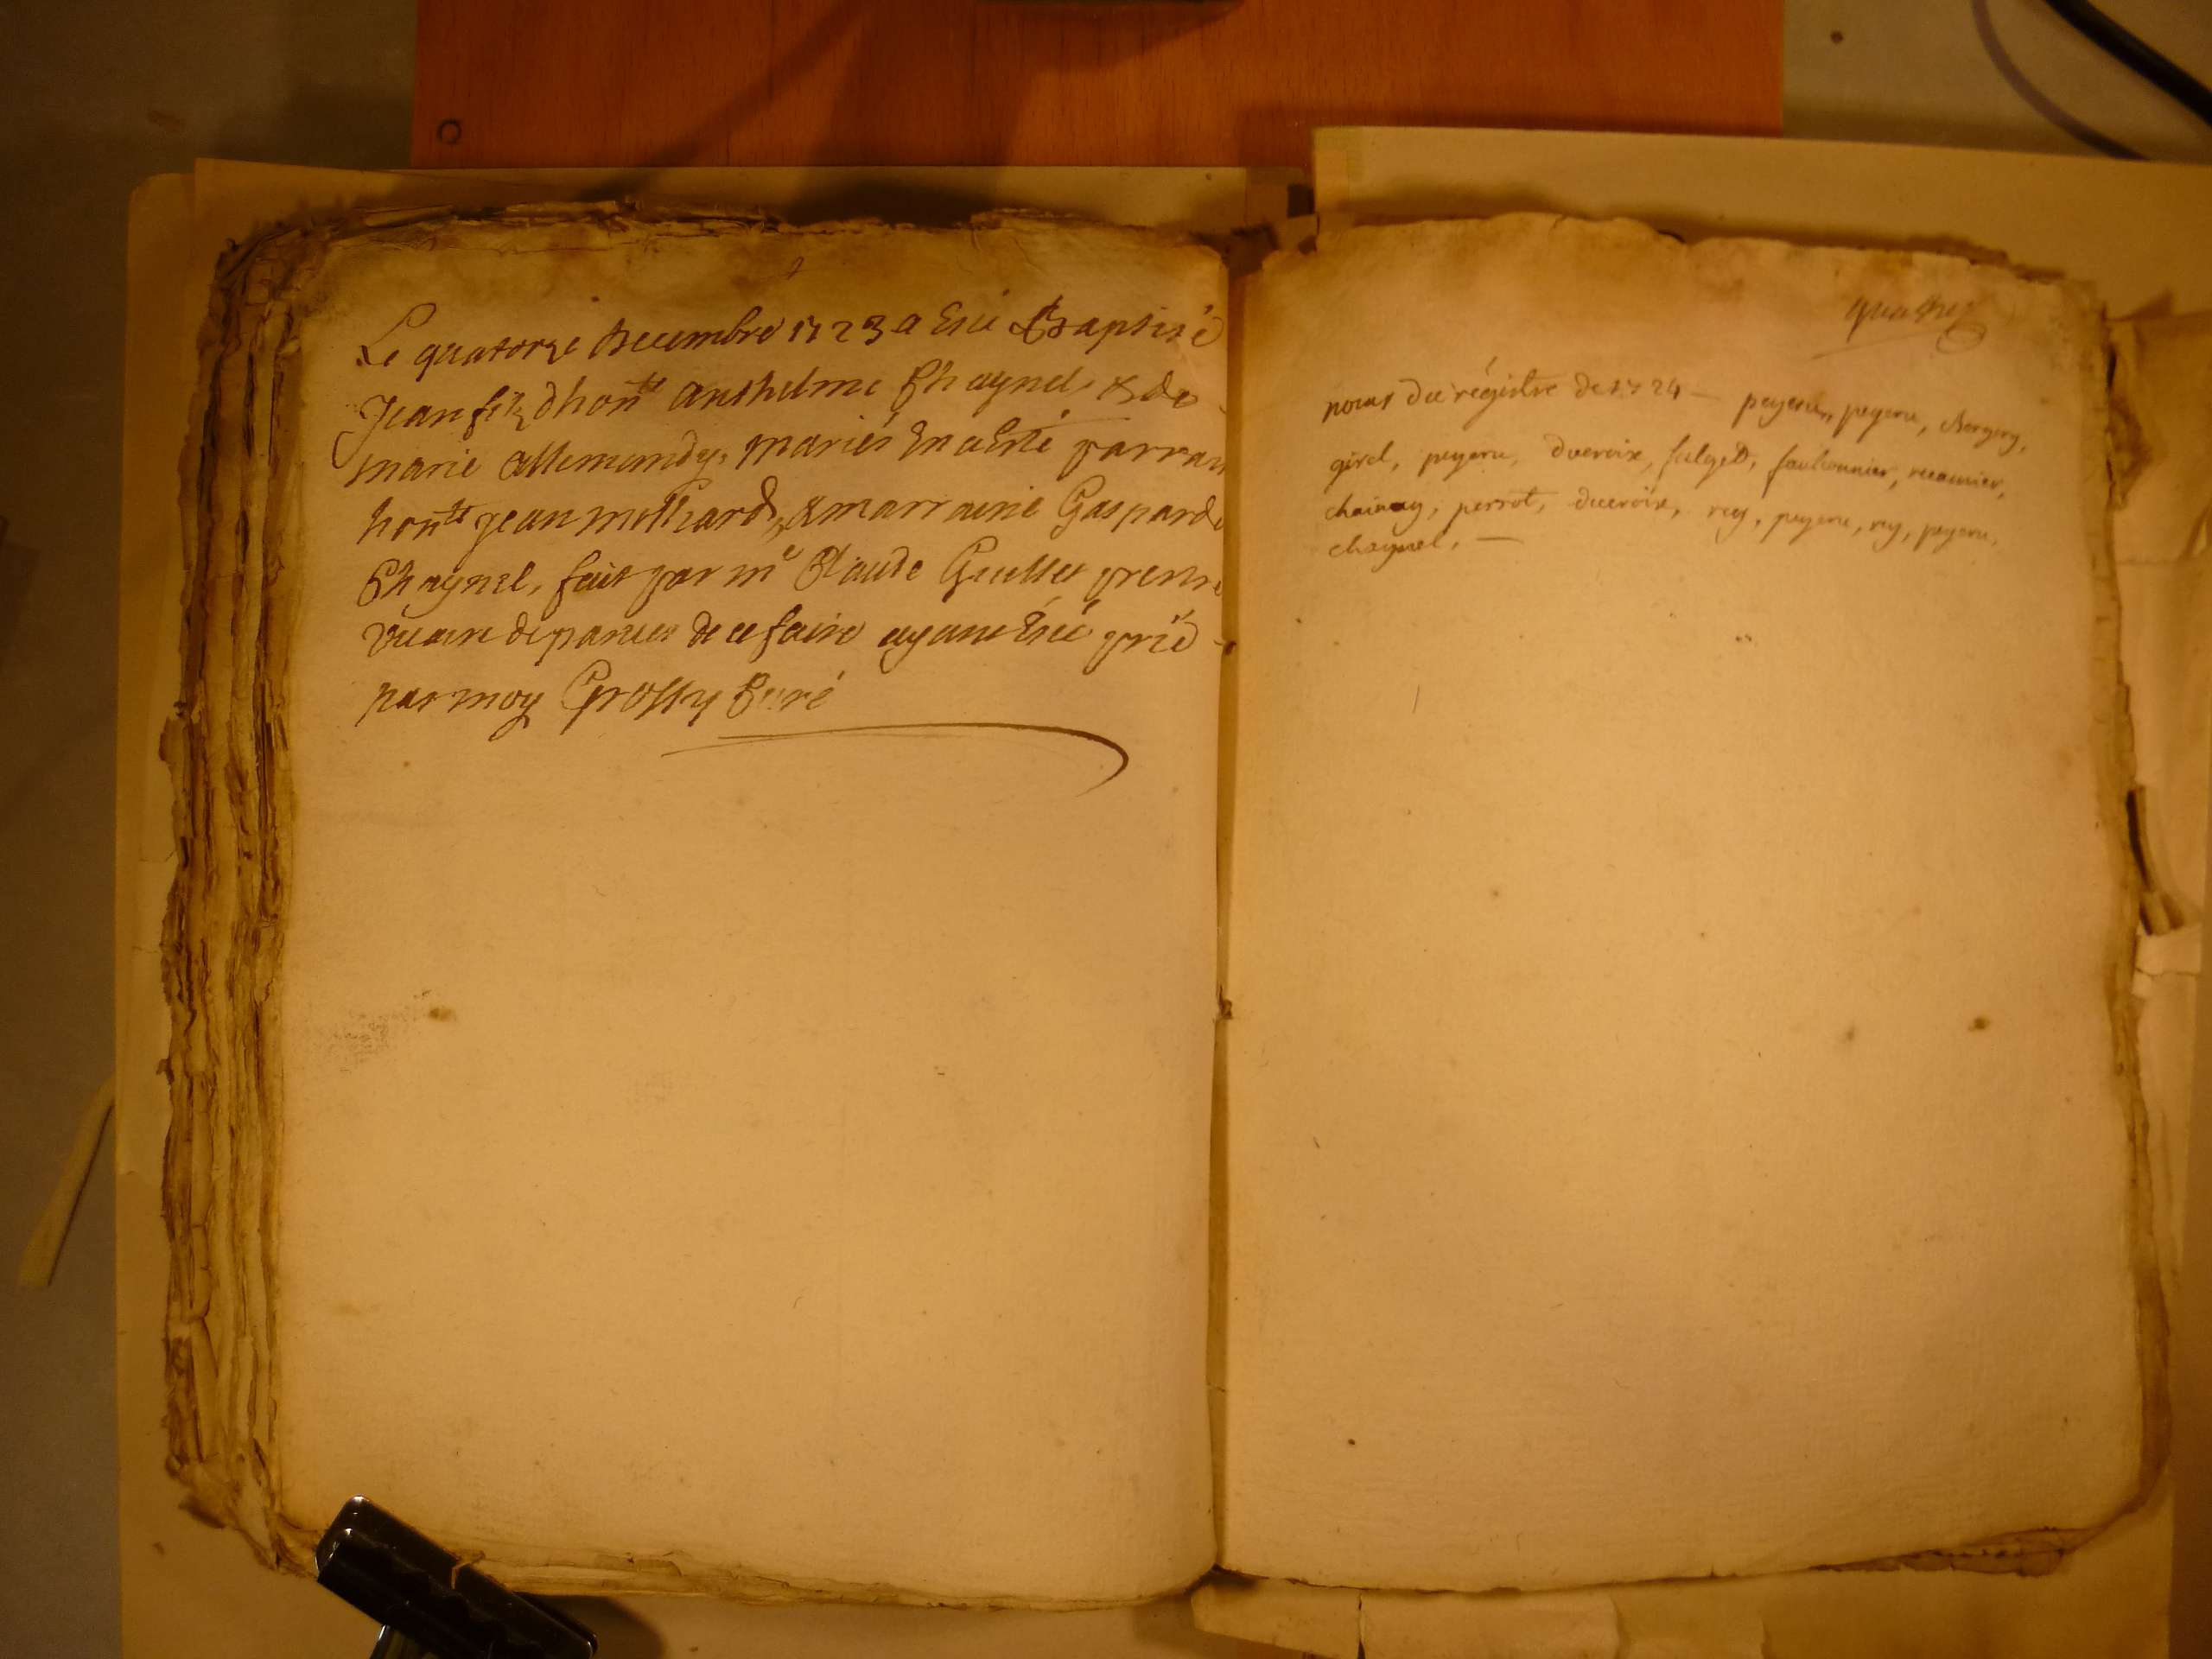 Le quatorze decembre 1723 a Esté Baptisé
Jean filz dhonte Anthelme Chaynel & de
marie allemandy, mariés En asté parrain
honte Jean molliard, & marraine Gasparde
Chaynel, fait par me Claude Guillet prestre
vicaire de de ce faire ayant Esté prié
par moy Grossy Curé
quatre
noms du régistre de 1724 — peyeru, peyeru, Bergery,
girel, peyeru, ducroix, falget, fauhonnier, recamier,
chainay, perrot, ducroix, rey, peyeru, rey, peyeru,
chaynel, —